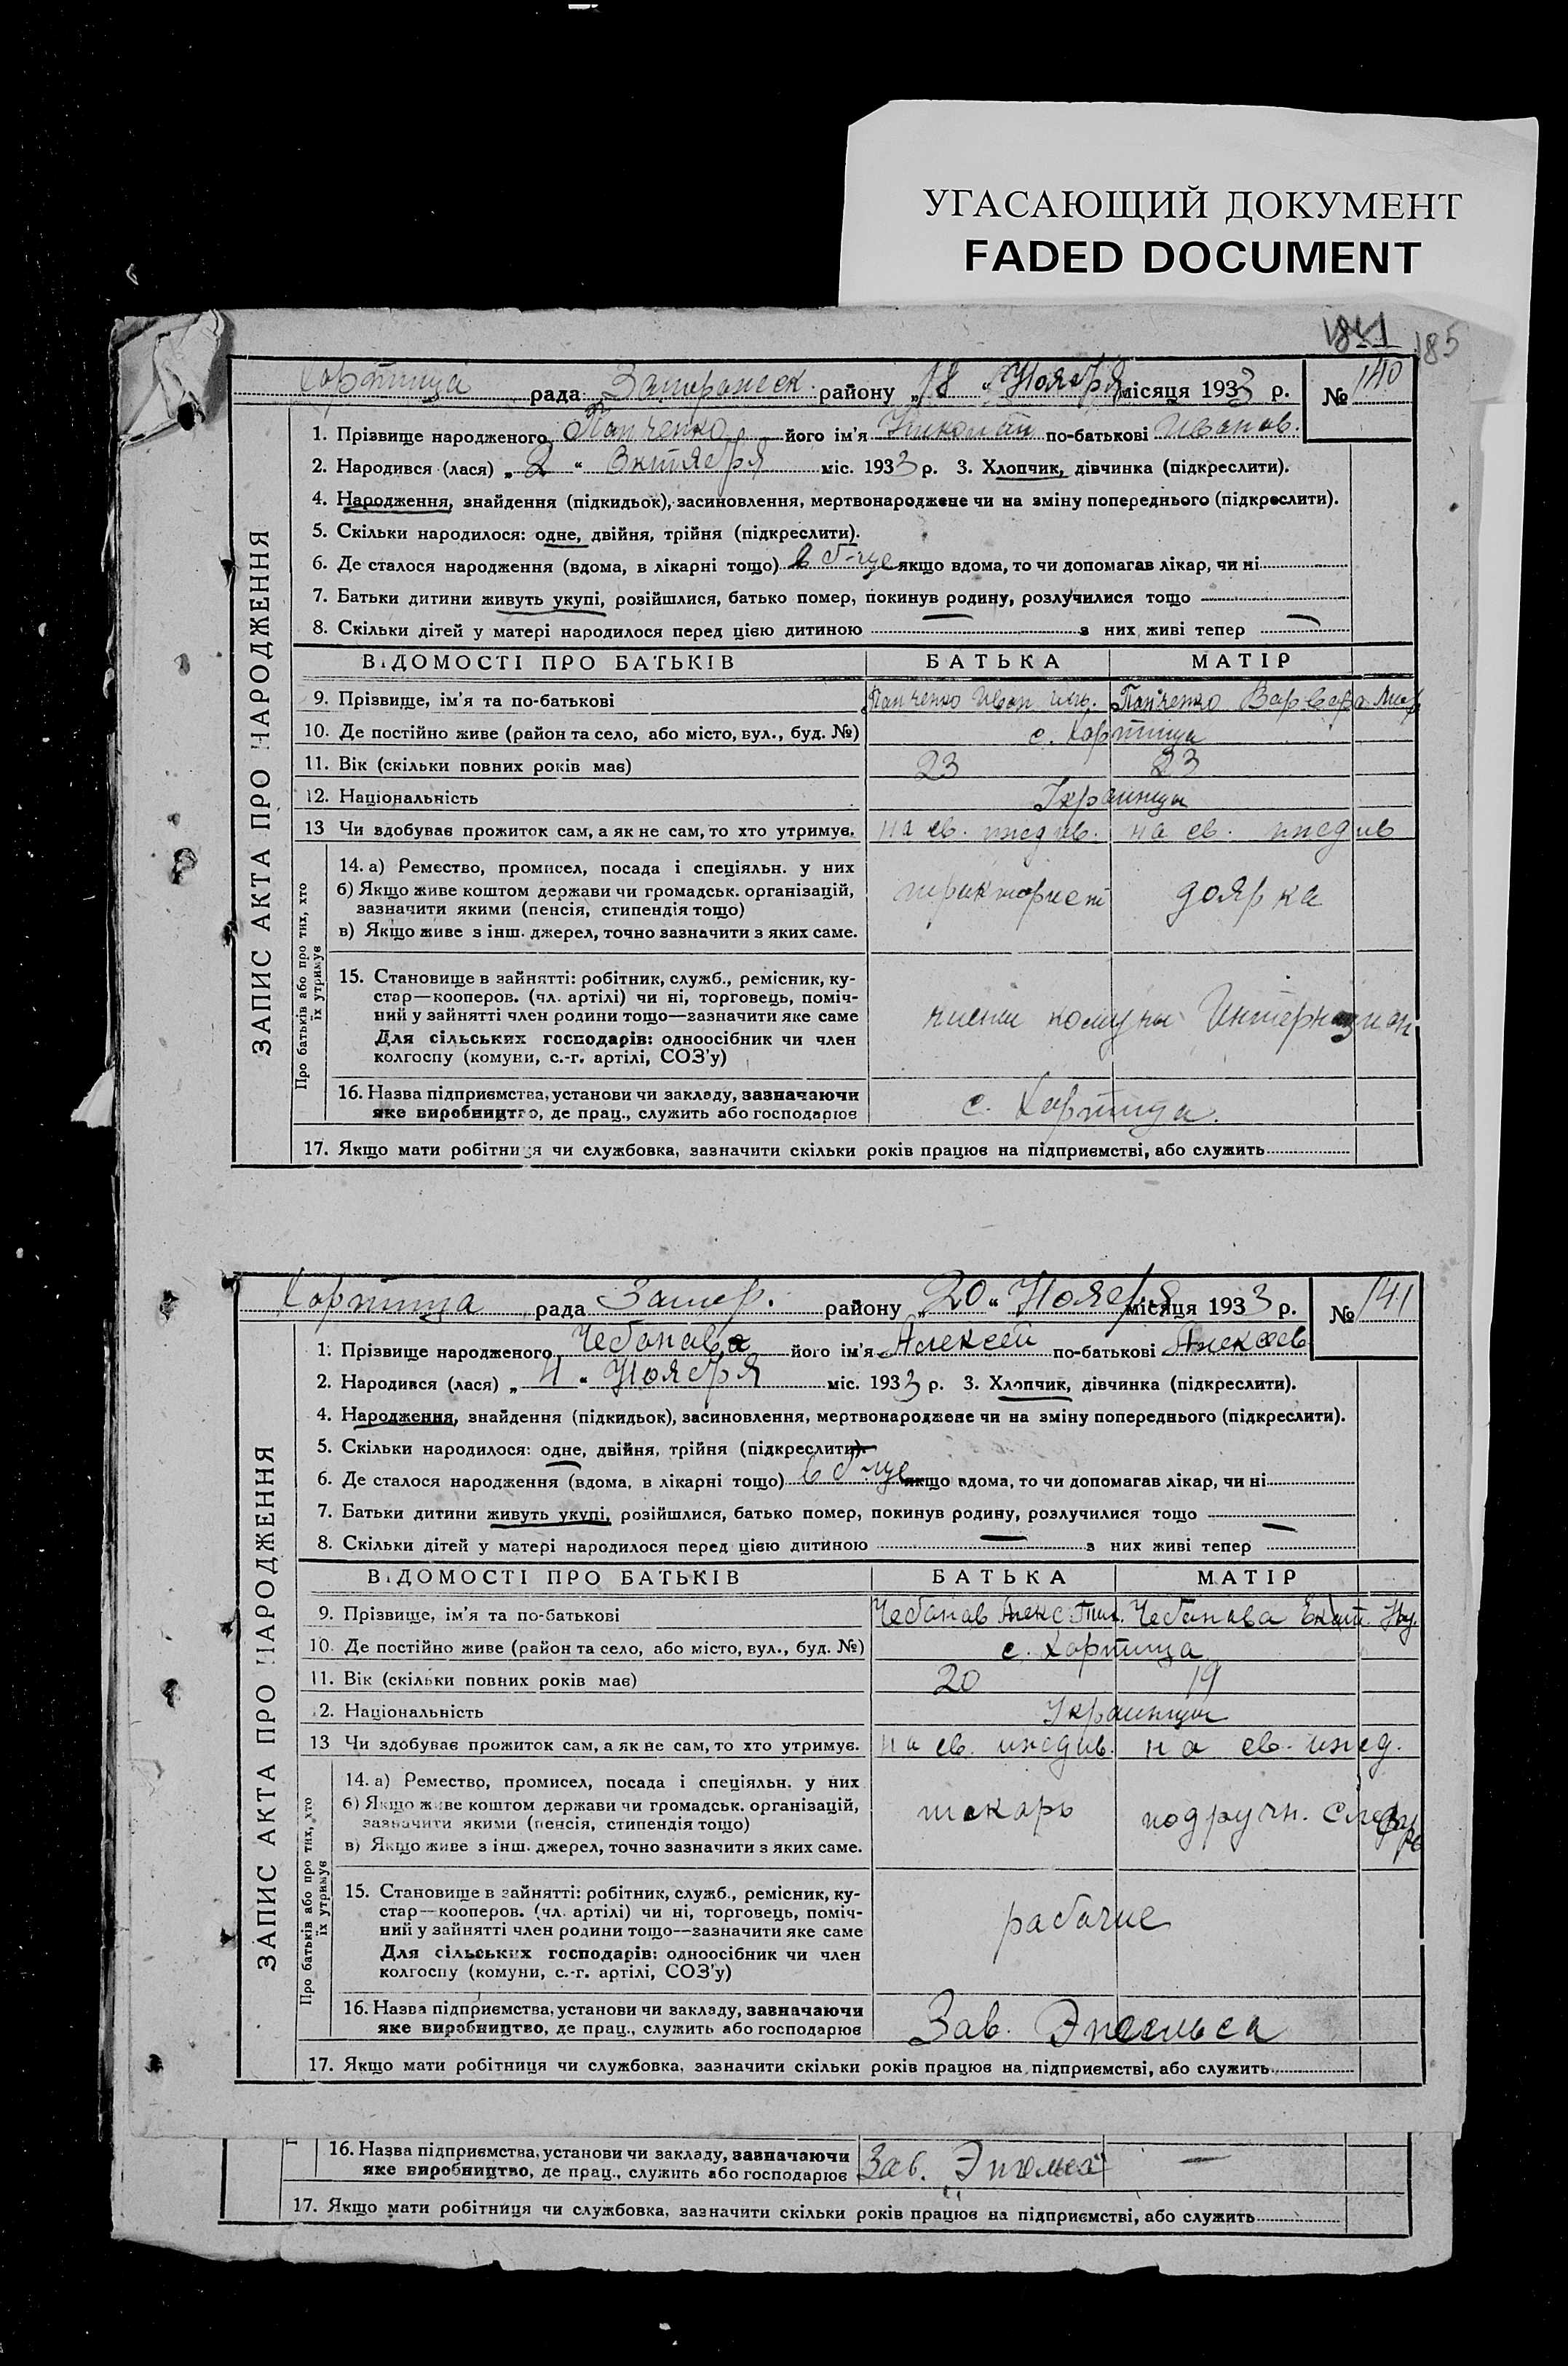 УГАСАЮЩИЙ ДОКУМЕНТ
FADED DOCUMENT
185
Хортица рада Запорожск району „18“ Ноября місяця 1933 р. № 140
ЗАПИС АКТА ПРО НАРОДЖЕННЯ
1. Прізвище народженого Панченко його ім'я Николай по-батькові Иванов.
2. Народився (лася) „2“ Октября міс. 1933 р. 3. Хлопчик, дівчинка (підкреслити).
4. Народження, знайдення (підкидьок), засиновлення, мертвонароджене чи на зміну попереднього (підкреслити).
5. Скільки народилося: одне, двійня, трійня (підкреслити).
6. Де сталося народження (вдома, в лікарні тощо) в б-це якщо вдома, то чи допомагав лікар, чи ні
7. Батьки дитини живуть укупі, розійшлися, батько помер, покинув родину, розлучилися тощо —
8. Скільки дітей у матері народилося перед цією дитиною — з них живі тепер —
ВІДОМОСТІ ПРО БАТЬКІВ БАТЬКА МАТІР
9. Прізвище, ім'я та по-батькові Панченко Иван Панченко Варвара
10. Де постійно живе (район та село, або місто, вул., буд. №) с. Хортица
11. Вік (скільки повних років має) 23 23
12. Національність Украинцы
13 Чи здобуває прожиток сам, а як не сам, то хто утримує. на св. иждив. на св. иждив
Про батьків або про тих, хто їх утримує
14. а) Ремество, промисел, посада і спеціяльн. у них
б) Якщо живе коштом держави чи громадськ. організацій,
зазначити якими (пенсія, стипендія тощо)
в) Якщо живе з інш. джерел, точно зазначити з яких саме.
тракторист доярка
15. Становище в зайнятті: робітник, служб., ремісник, ку-
стар—кооперов. (чл. артілі) чи ні, торговець, поміч-
ний у зайнятті член родини тощо—зазначити яке саме
Для сільських господарів: одноосібник чи член
колгоспу (комуни, с.-г. артілі, СОЗ'у)
члены комуны Интернацион
16. Назва підприємства, установи чи закладу, зазначаючи
яке виробництво, де прац., служить або господарює
с. Хортица.
17. Якщо мати робітниця чи службовка, зазначити скільки років працює на підприємстві, або служить
Хортица рада Запор. району „20“ Ноября місяця 1933 р. № 141
ЗАПИС АКТА ПРО НАРОДЖЕННЯ
1. Прізвище народженого його ім'я Алексей по-батькові Алексеев
2. Народився (лася) Ноября міс. 1933 р. 3. Хлопчик, дівчинка (підкреслити).
4. Народження, знайдення (підкидьок), засиновлення, мертвонароджене чи на зміну попереднього (підкреслити).
5. Скільки народилося: одне, двійня, трійня (підкреслити).
6. Де сталося народження (вдома, в лікарні тощо) в б-це якщо вдома, то чи допомагав лікар, чи ні
7. Батьки дитини живуть укупі, розійшлися, батько помер, покинув родину, розлучилися тощо —
8. Скільки дітей у матері народилося перед цією дитиною — з них живі тепер
ВІДОМОСТІ ПРО БАТЬКІВ БАТЬКА МАТІР
9. Прізвище, ім'я та по-батькові Чебанов Алекс. Тим. Чебанова Екат.
10. Де постійно живе (район та село, або місто, вул., буд. №) с. Хортица
11. Вік (скільки повних років має) 20 19
12. Національність Украинцы
13 Чи здобуває прожиток сам, а як не сам, то хто утримує. на св. иждив. на св. ижд.
Про батьків або про тих, хто їх утримує
14. а) Ремество, промисел, посада і спеціяльн. у них
б) Якщо живе коштом держави чи громадськ. організацій,
зазначити якими (пенсія, стипендія тощо)
в) Якщо живе з інш. джерел, точно зазначити з яких саме.
токарь подручн.
15. Становище в зайнятті: робітник, служб., ремісник, ку-
стар—кооперов. (чл. артілі) чи ні, торговець, поміч-
ний у зайнятті член родини тощо—зазначити яке саме
Для сільських господарів: одноосібник чи член
колгоспу (комуни, с.-г. артілі, СОЗ'у)
рабочие
16. Назва підприємства, установи чи закладу, зазначаючи
яке виробництво, де прац., служить або господарює
Зав. Энгельса
17. Якщо мати робітниця чи службовка, зазначити скільки років працює на підприємстві, або служить
16. Назва підприємства, установи чи закладу, зазначаючи
яке виробництво, де прац., служить або господарює
Зав. „Энгельса“ —
17. Якщо мати робітниця чи службовка, зазначити скільки років працює на підприємстві, або служить